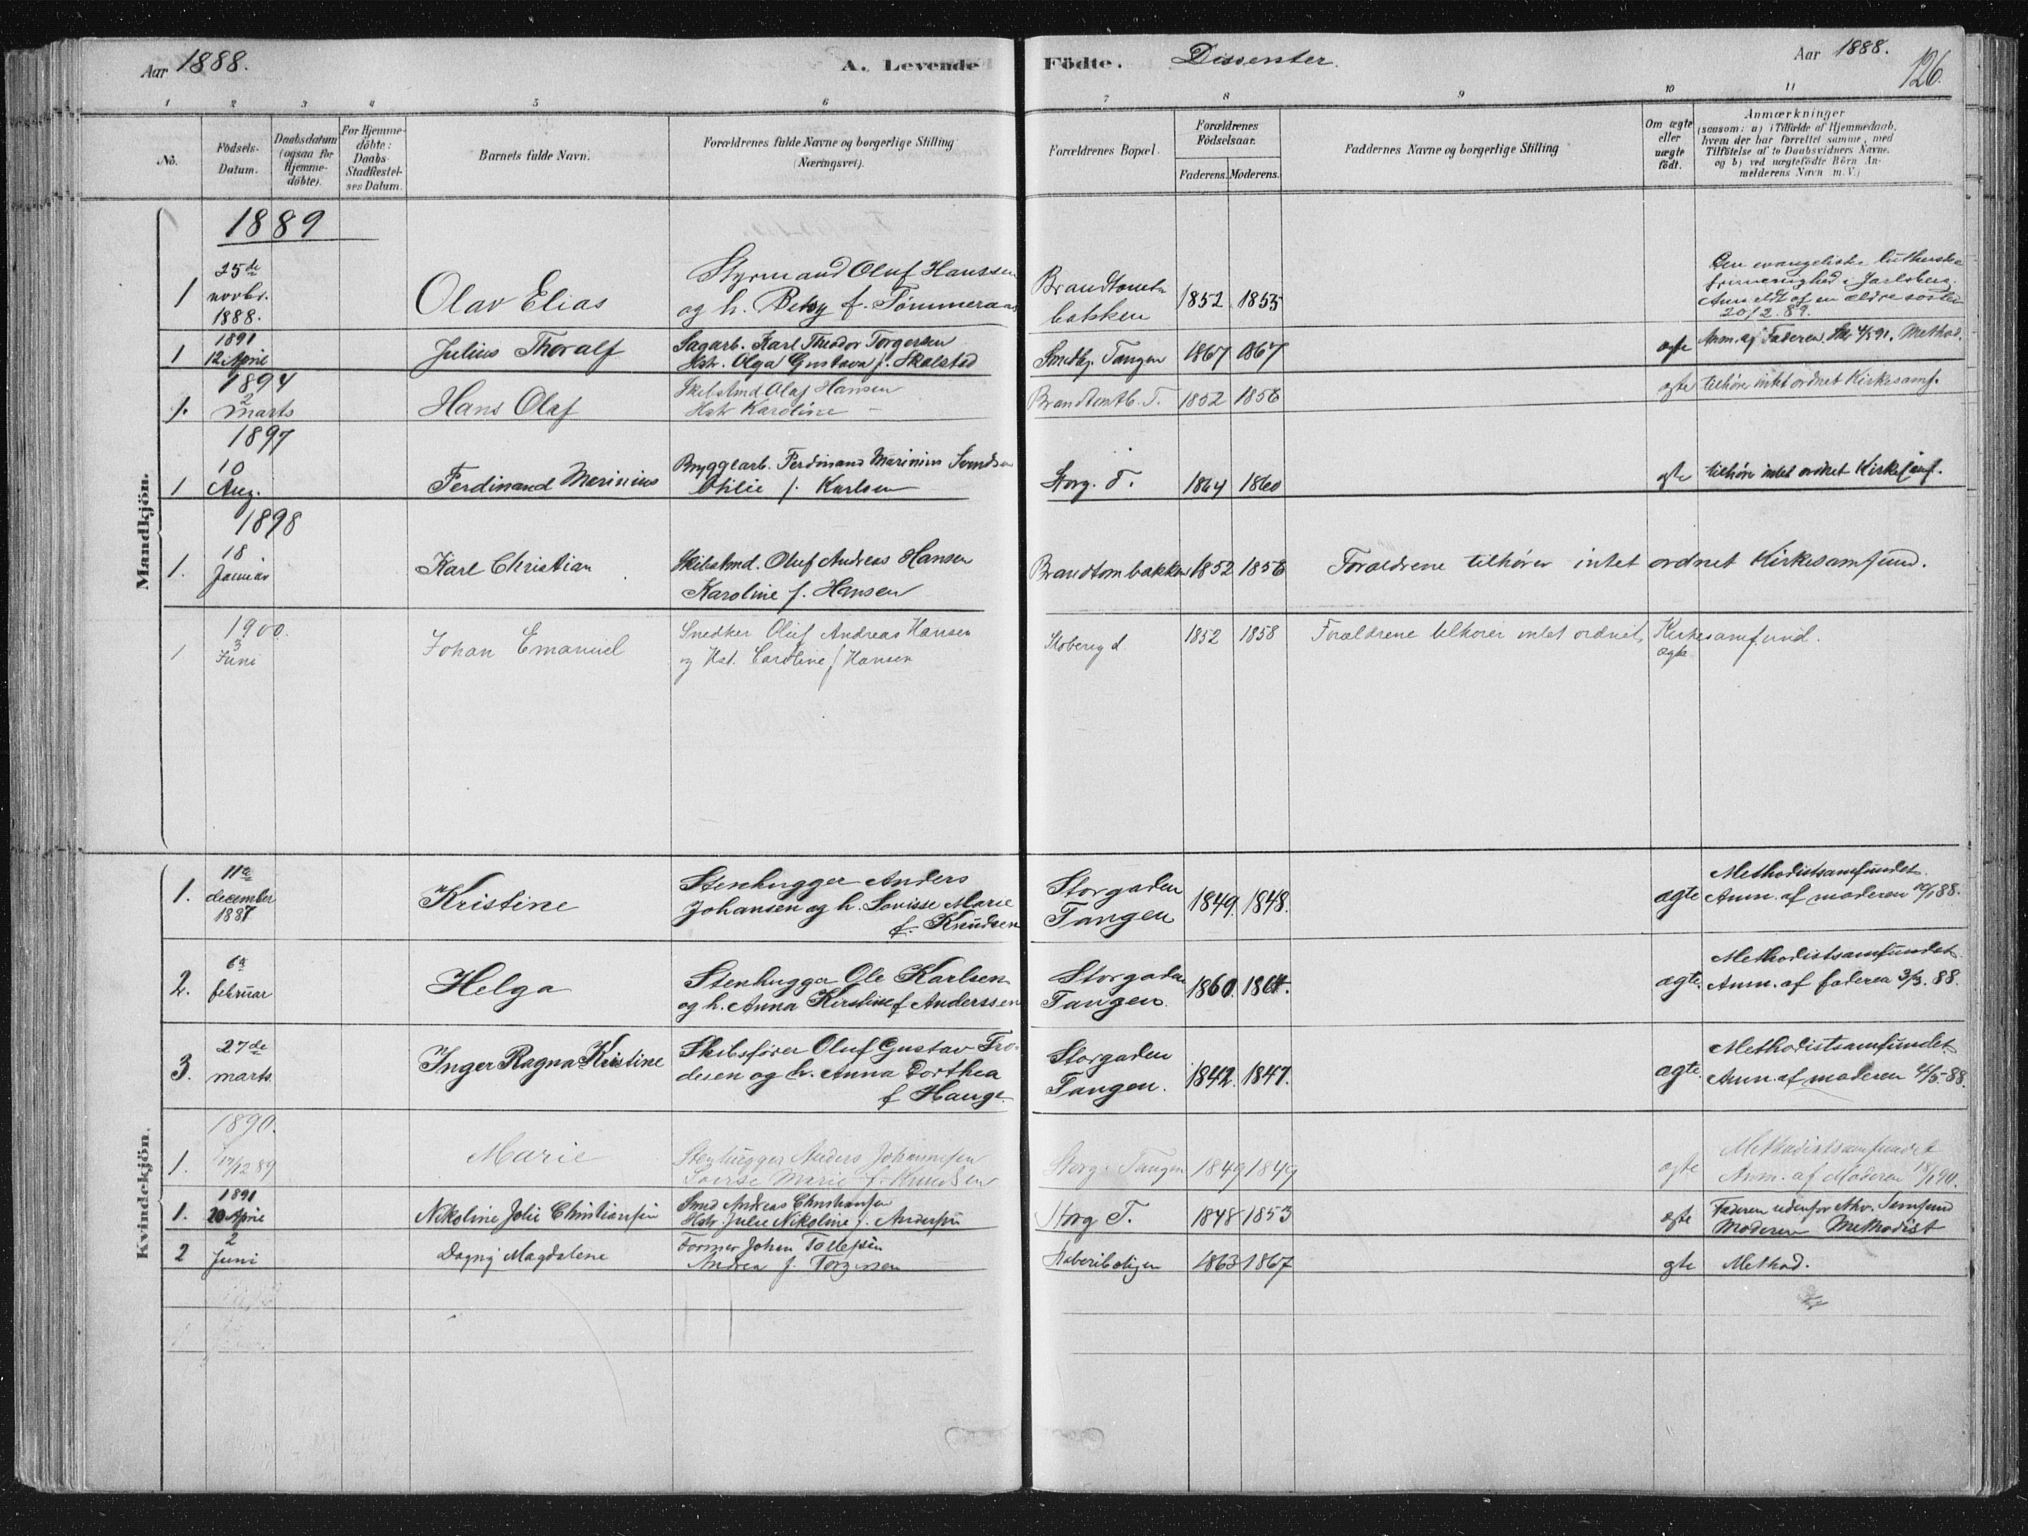 Aar 1888. A. Levende Födte. Dissenter. Aar 1888. 126.
1 2 3 4 5 6 7 8 9 10 11
No.
Födsels-
Datum.
Daabsdatum
(ogsaa for
Hjemme-
döbte).
For Hjemme-
döbte:
Daabs-
Stadfæstel-
ses Datum.
Barnets fulde Navn.
Forældrenes fulde Navne og borgerlige Stilling
(Næringsvei).
Forældrenes Bopæl.
Forældrenes
Födselsaar.
Faderens. Moderens.
Faddernes Navne og borgerlige Stilling
Om ægte
eller
uægte
födt.
Anmærkninger
(saasom: a) i Tilfælde af Hjemmedaab,
hvem der har forrettet samme, med
Tilföielse af to Daabsvidners Navne,
og b) ved uægtefödte Börn An-
melderens Navn m. V.)
Mandkjön.
1889
1
25de
novbr.
1888.
Olav Elias
Styrmand Oluf Hanssen
og h. Betsy f. Tømmeraas
Brandtomt-
bakken
1852 1855
Den evangeliske lutherske
frimenighed i Jarlsberg.
Anmeldt af en ældre søster
20/2.89.
1891
1 12 April
Julius Thoralf
Sagarb. Karl Theodor Torgersen
Hstr. Olga Gustava f. Skalstad
Smedbg. Tangen 1867 1867
ægte Anm. af Faderen 4/5 91. Method.
1894
1. 2
Marts
Hans Olaf
Skibstmd Olaf Hansen
Hstr Karoline —
Brandtomtb. T. 1852 1856
ægte tilhører intet ordnet Kirkesamf.
1897
1 10
Aug.
Ferdinand Marinius
Bryggearb. Ferdinand Marinius Svendsen
Otilie f. Karlsen
Storg. T. 1864 1860
ægte tilhører intet ordnet Kirkesamf.
1898
1. 18
Januar
Karl Christian
Skibstmd. Oluf Andreas Hansen
Karoline f. Hansen
Brandtombakken 1852 1856 Forældrene tilhører intet ordnet Kirkesamfund.
1900.
1 3
Juni
Johan Emanuel
Snedker Oluf Andreas Hansen
og Hst. Caroline f Hansen
1852 1858 Forældrene tilhører intet ordnet Kirkesamfund.
ægte
Kvindekjön.
1. 11te
december
1887
Kristine
Stenhugger Anders
Johansen og h. Lovisse Marie
f. Knudsen
Storgaden
Tangen
1849. 1848.
ægte
Methodistsamfundet.
Anm. af moderen 10/1 88.
2. 6te
februar
Helga
Stenhugger Ole Karlsen
og h. Anna Kirstine f Anderssen
Storgaden
Tangen.
1860. 1864.
ægte.
Methodistsamfundet.
Anm. af faderen 3/3. 88.
3. 27de
marts.
Inger Ragna Kristine
Skibsfører Oluf Gustav Fro-
desen og h. Anna Dorthea
f Hauge.
Storgaden
Tangen.
1842. 1847.
ægte.
Methodistsamfundet.
Anm. af moderen 4/5-88.
1890.
1. 17/12 89
Marie
Stenhugger Anders Johannesen
Lovise Marie f. Knudsen
Storg. Tangen 1849 1849
ægte
Methodistsamfundet
Anm. af Moderen 18/1 90.
1891
1. 20 April
Nikoline Jolie Christiansen
Smed Andreas Christiansen
Hstr. Julie Nikoline f. Andersen
Storg T. 1848 1853
ægte
Faderen udenfor Samfund
Moderen Methodist
2 2
Juni
Dagny Magdalene
Former Johan Tollefsen
Andrea f. Torgersen
1863 1867
ægte Method.